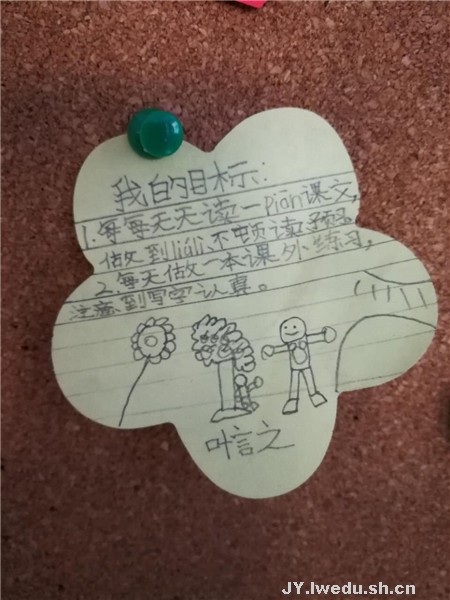 我的目标:
1.每每天天读一Piān课文,
做到liúlì,不顿读
2.每天做一本课外练习,
注意到写字认真。
叶言之
JY.lwedu.sh.cn